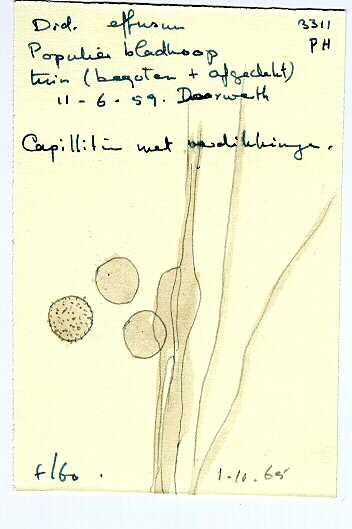 Did. effusum 3311
Populier bladhoop PH
tuin (begoten + afgedekt)
11-6.59. Doorwerth
Capillitium met verdikkingen.
f/60. 1-10.65